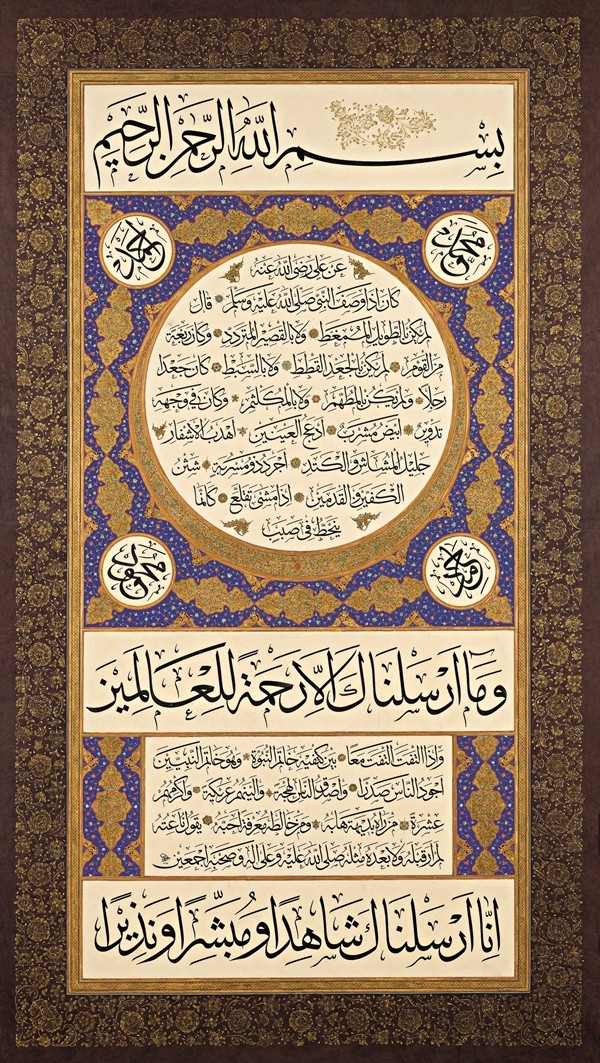 بِسْمِ اللهِ الرَّحْمٰنِ الرَّحِيمِ
محمد
احمد
عن علي رضي الله عنه
كان اذا وصف النبي صلى الله عليه وسلم قال
لم يكن بالطويل الممغط ولا بالقصير المتردد وكان ربعة
من القوم لم يكن بالجعد القطط ولا بالسبط كان جعدا
رجلا ولم يكن بالمطهم ولا بالمكلثم وكان في وجهه
تدوير ابيض مشرب ادعج العينين اهدب الاشفار
جليل المشاش والكتد اجرد ذو مسربة شثن
الكفين والقدمين اذا مشى تقلع كانما
ينحط في صبب
محمود
وَمَا اَرْسَلْنَاكَ اِلَّا رَحْمَةً لِلْعَالَمِينَ
واذا التفت التفت معا بين كتفيه خاتم النبوة وهو خاتم النبيين
اجود الناس صدرا واصدق الناس لهجة والينهم عريكة واكرمهم
عشرة من رآه بديهة هابه ومن خالطه معرفة احبه يقول ناعته
لم ار قبله ولا بعده مثله صلى الله عليه وعلى اله وصحبه اجمعين
اِنَّا اَرْسَلْنَاكَ شَاهِدًا وَمُبَشِّرًا وَنَذِيرًا